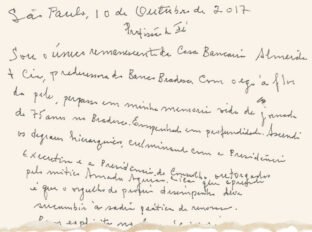 São Paulo, 10 de Outubro de 2017
Profissão de Fé
Sou o único remanescente da Casa Bancaria Almeida
& Cia, predecessora do Banco Bradesco. Com o ego à flor
da pele, perpassa em minha memoria vida de jornada
de 75 anos no Bradesco. Empenhado em profundidade. Ascendi
os degraus hierarquicos, culminando com a Presidência
Executiva e a Presidência do Conselho, outorgados
pelo mítico Amador Aguiar. Lição que aprendi
é que o orgulho do próprio desempenho deve
sucumbir à sadia prática de renovar.